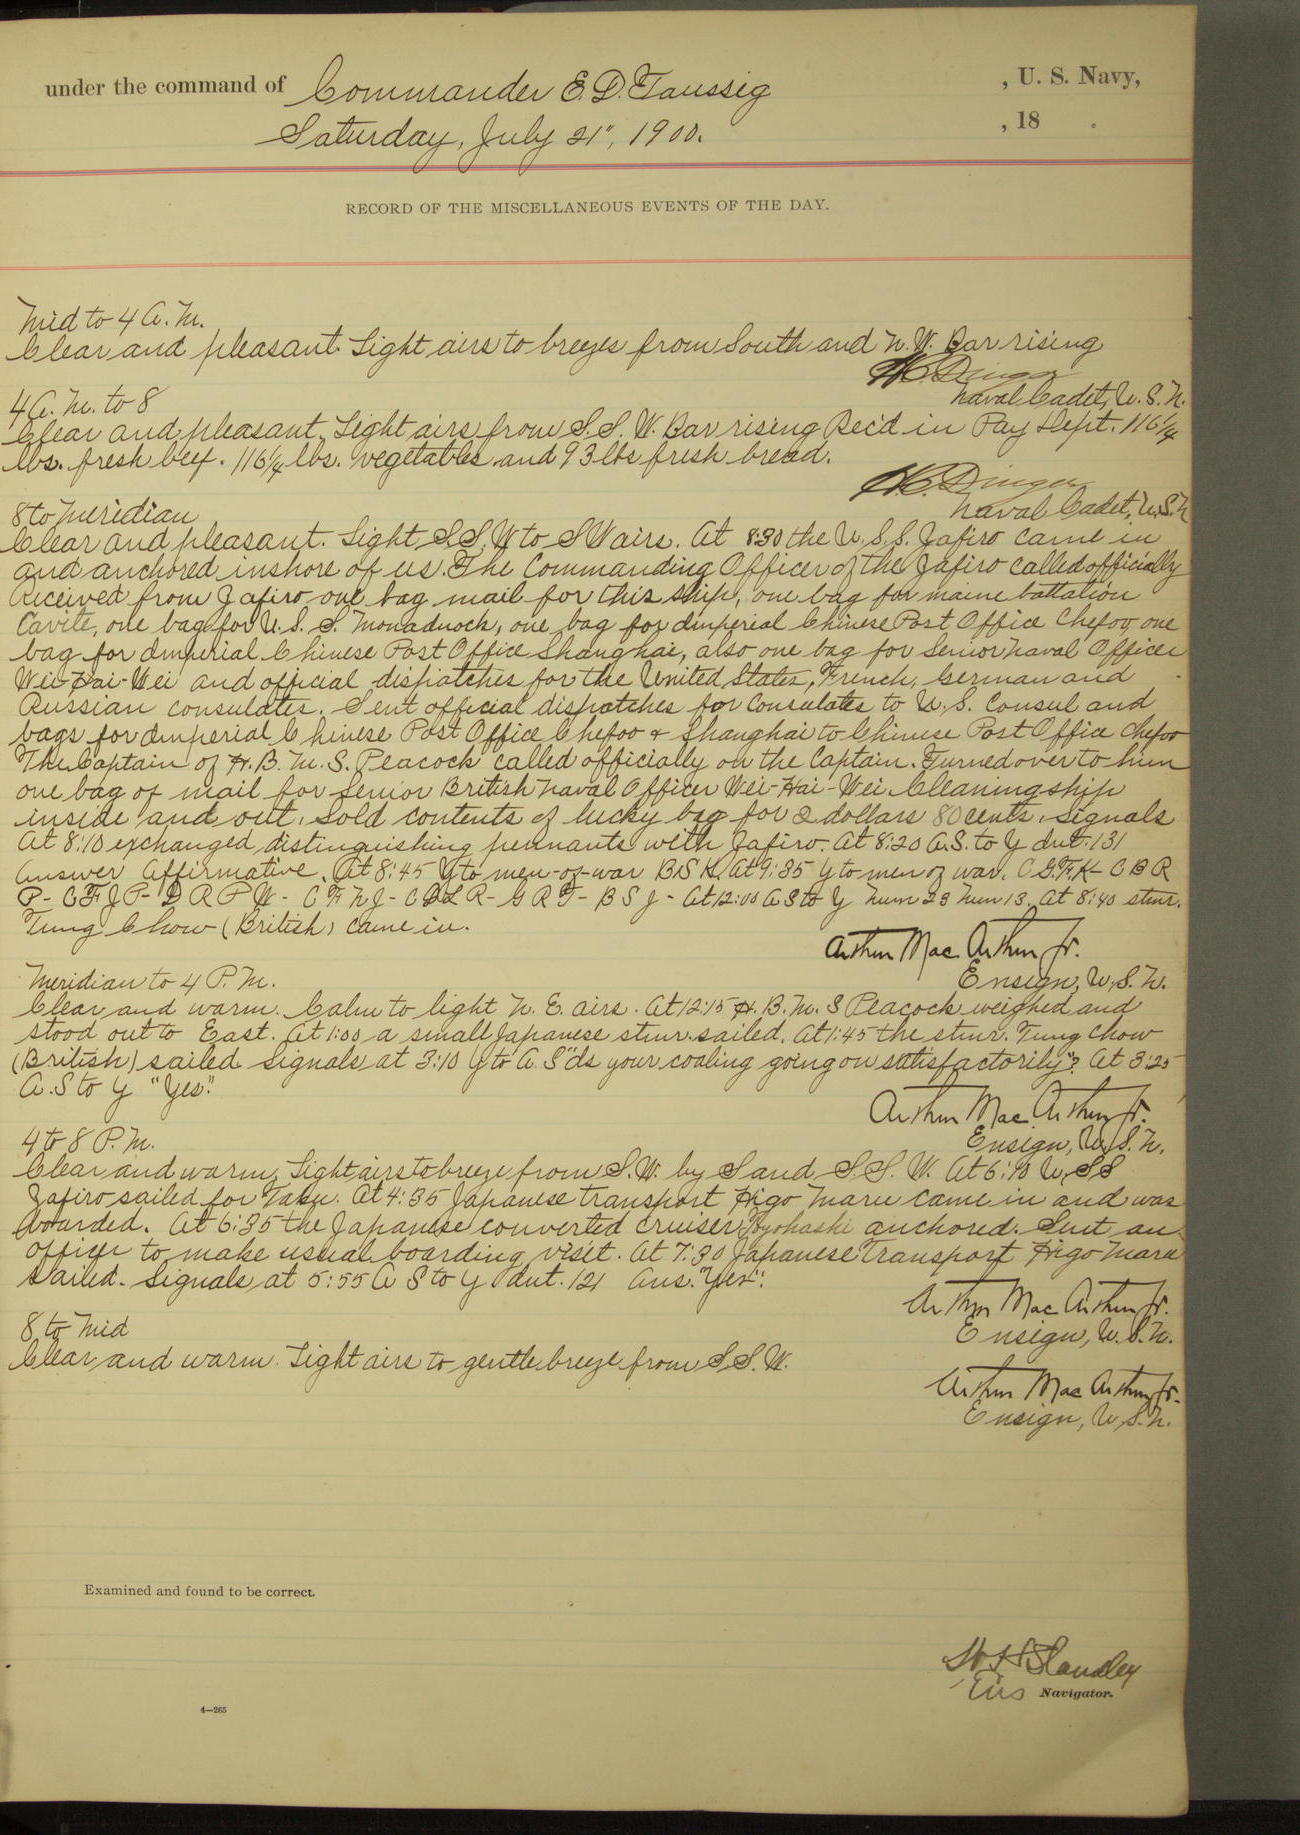 under the command of Commander E. D. Taussig , U. S. Navy,
Saturday, July 21", 1900. , 18 .
RECORD OF THE MISCELLANEOUS EVENTS OF THE DAY.
Mid to 4 A. M.
Clear and pleasant. Light airs to breezes from South and N. W. Bar rising
H C Dinger
Naval Cadet, U. S. N.
4 A. M. to 8
Clear and pleasant. Light airs from S. S. W. Bar rising Rec'd in Pay Dept. 116 1/4
lbs. fresh beef. 116 1/4 lbs. vegetables and 93 lbs fresh bread.
H C. Dinger
Naval Cadet, U.S.N
8 to Meridian
Clear and pleasant. Light S S. W to S W airs. At 8:30 the U. S. S. Zafiro came in
and anchored inshore of us. The Commanding Officer of the Zafiro called officially
Received from Zafiro one bag mail for this ship, one bag for maine battalion
Cavite, one bag for U. S. S. Monadnock, one bag for Imperial Chinese Post Office Chefoo, one
bag for Imperial Chinese Post Office Shanghai, also one bag for Senior Naval Officer
Wei-Hai-Wei and official dispatches for the United States, French, German and
Russian consulates. Sent official dispatches for Consulates to U. S. Consul and
bags for Imperial Chinese Post Office Chefoo & Shanghai to Chinese Post Office Chefoo
The Captain of H. B. M. S. Peacock called officially on the Captain. Turned over to him
one bag of mail for Senior British Naval Officer Wei-Hai-Wei Cleaning ship
inside and out. Sold contents of lucky bag for 2 dollars 80 cents. Signals
At 8:10 exchanged distinguishing pennants with Zafiro. At 8:20 A.S. to Y Int. 131
Answer Affirmative. At 8:45 Y to men-of-war B S K. At 9:35 Y to men of war. C G. F. K - C B R
P - C F J P - D R P W - C F N J - C D L R - G R T - B S J - At 12:00 A S to Y Num 23 Num 13. At 8:40 stmr.
Tung Chow (British) came in.
Arthur Mac Arthur Jr.
Ensign, U. S. N.
Meridian to 4 P. M.
Clear and warm. Calm to light N. E. airs. At 12:15 H. B. M. S Peacock weighed and
stood out to East. At 1:00 a small Japanese stmr. sailed. At 1:45 the stmr. Tung Chow
(British) sailed Signals at 3:10 Y to A. S "Is your coaling going on satisfactorily"? At 3:25
A. S to Y "Yes."
Arthur Mac. Arthur Jr.
Ensign, U. S. N.
4 to 8 P. M.
Clear and warm, Light airs to breeze from S. W. by S and S. S. W. At 6:10 U. S S
Zafiro sailed for Taku. At 4:35 Japanese transport Higo Maru came in and was
boarded. At 6:35 the Japanese converted cruiser Toyohashi anchored. Sent an
officer to make usual boarding visit. At 7:30 Japanese Transport Higo Maru
sailed. Signals at 5:55 A S to Y Int. 121 Ans. "Yes".
Arthur Mac Arthur Jr.
Ensign, U. S. N.
8 to Mid
Clear and warm. Light airs to gentle breeze from S S. W.
Arthur Mac Arthur Jr.
Ensign, U. S. N.
Examined and found to be correct.
W H Standley
Ens Navigator.
4—265